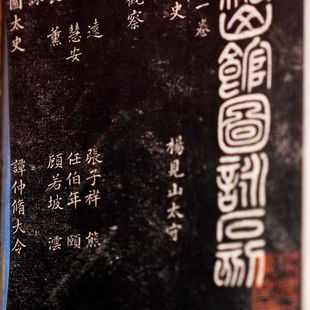 館圖詠石刻
一卷
史 楊見山太守
觀察
遠 張子祥 熊
慧安 任伯年 頤
薰 顧若坡 澐
圖太史 譚仲脩大令